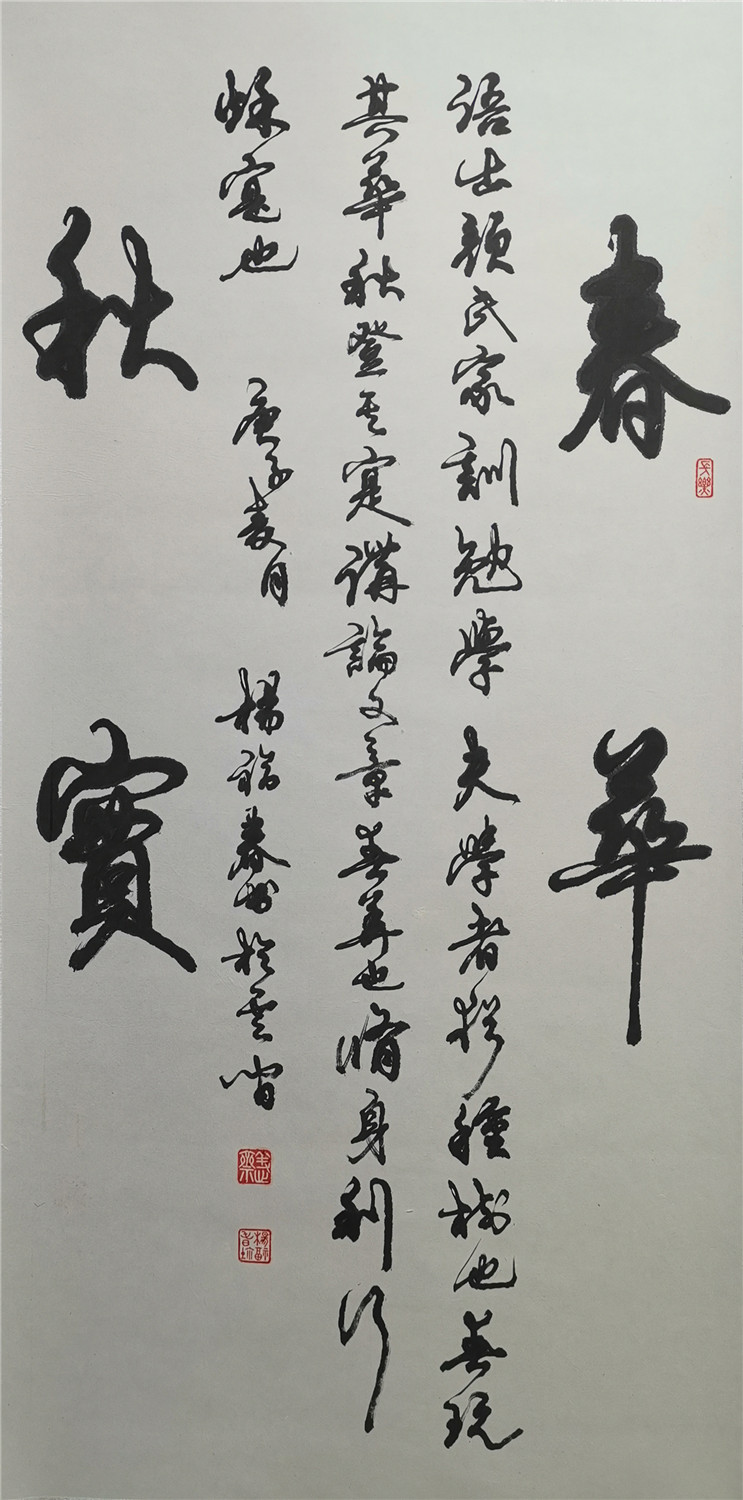 春華
語出顏氏家訓勉學夫學者猶種樹也春玩
其華秋登其實講論文章春華也脩身利行
秌實也 庚子夏月 楊福春書於雲間
秋實
長樂